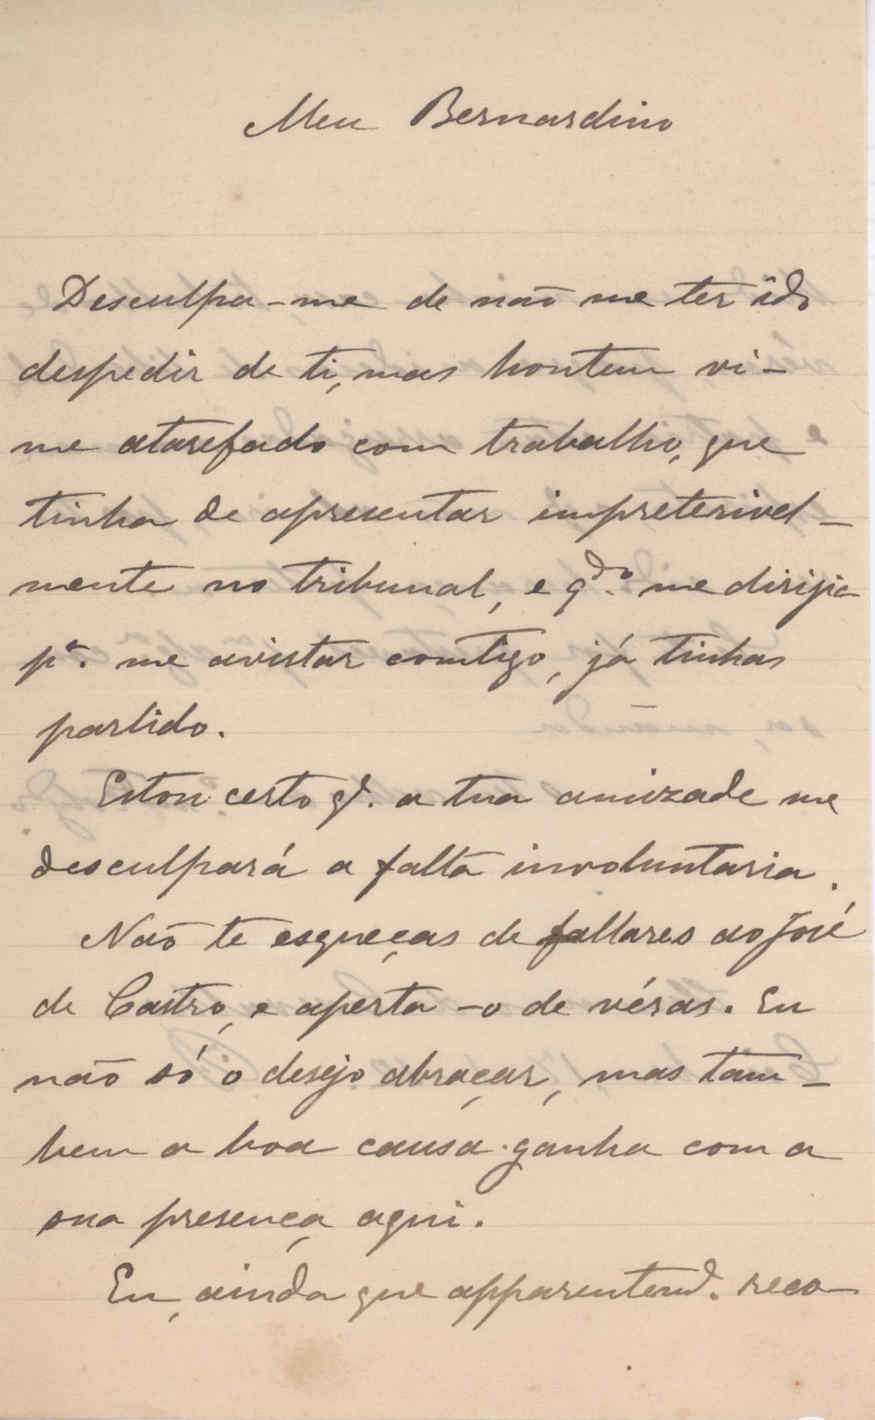 Meu Bernardino
Desculpa-me de não me ter ido
despedir de ti, mas hontem vi-
me atarefado com trabalho, que
tinha de apresentar impreterivel-
mente no tribunal, e qdo. me dirigia
pª. me avistar comtigo, já tinhas
partido.
Estou certo q̃. a tua amizade me
desculpará a falta involuntaria.
Não te esqueças de fallares ao José
de Castro, e aperta-o de véras. Eu
não só o desejo abraçar, mas tam-
bem a boa causa ganha com a
sua presença aqui.
Eu, ainda que apparentemd. reco-